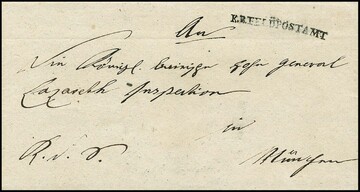 An
K.B.FELDPOSTAMT
Die Königl. baierische General
Lazareth Inspektion
in
R. d. S. München